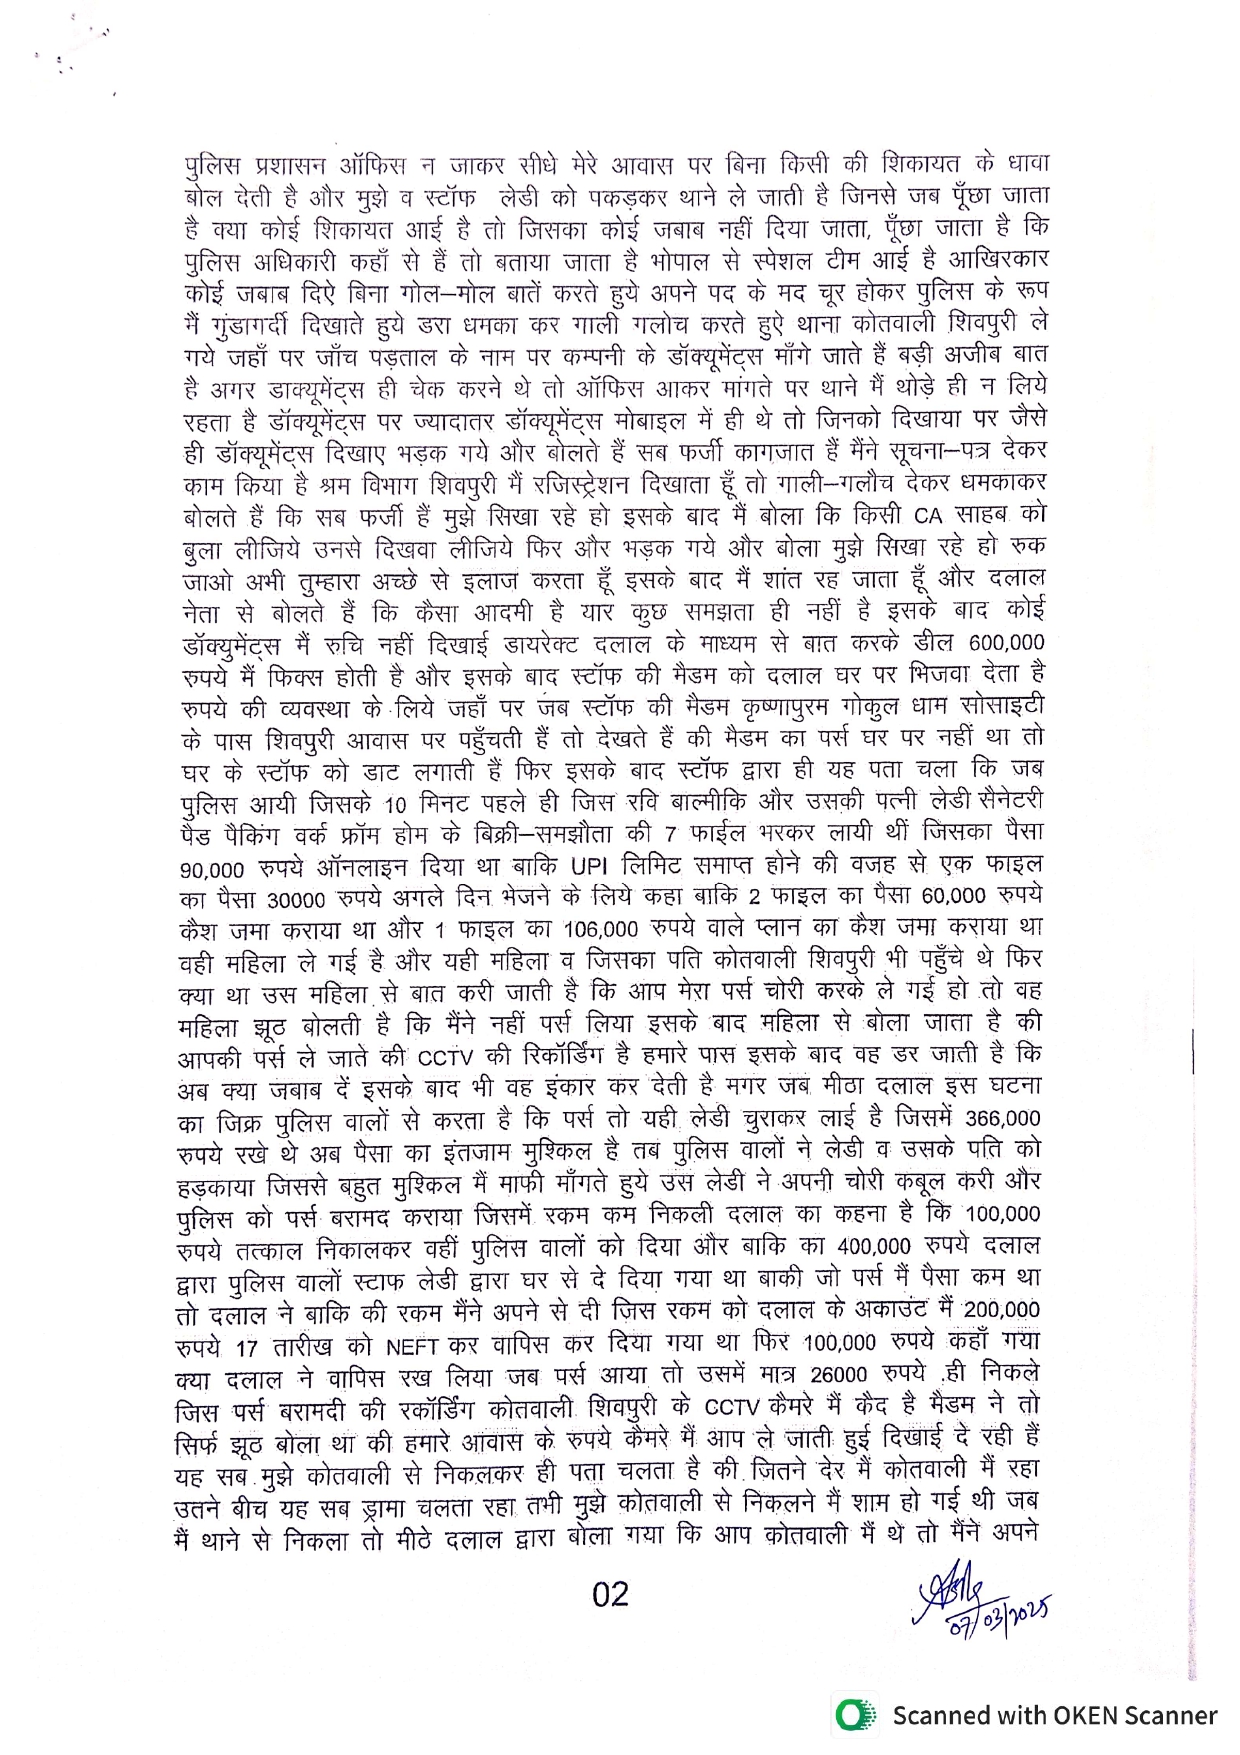 पुलिस प्रशासन ऑफिस न जाकर सीधे मेरे आवास पर बिना किसी की शिकायत के धावा
बोल देती है और मुझे व स्टॉफ लेडी को पकड़कर थाने ले जाती है जिनसे जब पूँछा जाता
है क्या कोई शिकायत आई है तो जिसका कोई जबाब नहीं दिया जाता, पूँछा जाता है कि
पुलिस अधिकारी कहाँ से हैं तो बताया जाता है भोपाल से स्पेशल टीम आई है आखिरकार
कोई जबाब दिऐ बिना गोल–मोल बातें करते हुये अपने पद के मद चूर होकर पुलिस के रूप
मैं गुंडागर्दी दिखाते हुये डरा धमका कर गाली गलोच करते हुऐ थाना कोतवाली शिवपुरी ले
गये जहाँ पर जाँच पड़ताल के नाम पर कम्पनी के डॉक्यूमेंट्स माँगे जाते हैं बड़ी अजीब बात
है अगर डाक्यूमेंट्स ही चेक करने थे तो ऑफिस आकर मांगते पर थाने मैं थोड़े ही न लिये
रहता है डॉक्यूमेंट्स पर ज्यादातर डॉक्यूमेंट्स मोबाइल में ही थे तो जिनको दिखाया पर जैसे
ही डॉक्यूमेंट्स दिखाए भड़क गये और बोलते हैं सब फर्जी कागजात हैं मैंने सूचना–पत्र देकर
काम किया है श्रम विभाग शिवपुरी मैं रजिस्ट्रेशन दिखाता हूँ तो गाली–गलौच देकर धमकाकर
बोलते हैं कि सब फर्जी हैं मुझे सिखा रहे हो इसके बाद मैं बोला कि किसी CA साहब को
बुला लीजिये उनसे दिखवा लीजिये फिर और भड़क गये और बोला मुझे सिखा रहे हो रुक
जाओ अभी तुम्हारा अच्छे से इलाज करता हूँ इसके बाद मैं शांत रह जाता हूँ और दलाल
नेता से बोलते हैं कि कैसा आदमी है यार कुछ समझता ही नहीं है इसके बाद कोई
डॉक्युमेंट्स मैं रुचि नहीं दिखाई डायरेक्ट दलाल के माध्यम से बात करके डील 600,000
रुपये मैं फिक्स होती है और इसके बाद स्टॉफ की मैडम को दलाल घर पर भिजवा देता है
रुपये की व्यवस्था के लिये जहाँ पर जब स्टॉफ की मैडम कृष्णापुरम गोकुल धाम सोसाइटी
के पास शिवपुरी आवास पर पहुँचती हैं तो देखते हैं की मैडम का पर्स घर पर नहीं था तो
घर के स्टॉफ को डाट लगाती हैं फिर इसके बाद स्टॉफ द्वारा ही यह पता चला कि जब
पुलिस आयी जिसके 10 मिनट पहले ही जिस रवि बाल्मीकि और उसकी पत्नी लेडी सैनेटरी
पैड पैकिंग वर्क फ्रॉम होम के बिक्री–समझौता की 7 फाईल भरकर लायी थीं जिसका पैसा
90,000 रुपये ऑनलाइन दिया था बाकि UPI लिमिट समाप्त होने की वजह से एक फाइल
का पैसा 30000 रुपये अगले दिन भेजने के लिये कहा बाकि 2 फाइल का पैसा 60,000 रुपये
कैश जमा कराया था और 1 फाइल का 106,000 रुपये वाले प्लान का कैश जमा कराया था
वही महिला ले गई है और यही महिला व जिसका पति कोतवाली शिवपुरी भी पहुँचे थे फिर
क्या था उस महिला से बात करी जाती है कि आप मेरा पर्स चोरी करके ले गई हो तो वह
महिला झूठ बोलती है कि मैंने नहीं पर्स लिया इसके बाद महिला से बोला जाता है की
आपकी पर्स ले जाते की CCTV की रिकॉर्डिंग है हमारे पास इसके बाद वह डर जाती है कि
अब क्या जबाब दें इसके बाद भी वह इंकार कर देती है मगर जब मीठा दलाल इस घटना
का जिक्र पुलिस वालों से करता है कि पर्स तो यही लेडी चुराकर लाई है जिसमें 366,000
रुपये रखे थे अब पैसा का इंतजाम मुश्किल है तब पुलिस वालों ने लेडी व उसके पति को
हड़काया जिससे बहुत मुश्किल मैं माफी माँगते हुये उस लेडी ने अपनी चोरी कबूल करी और
पुलिस को पर्स बरामद कराया जिसमें रकम कम निकली दलाल का कहना है कि 100,000
रुपये तत्काल निकालकर वहीं पुलिस वालों को दिया और बाकि का 400,000 रुपये दलाल
द्वारा पुलिस वालों स्टाफ लेडी द्वारा घर से दे दिया गया था बाकी जो पर्स मैं पैसा कम था
तो दलाल ने बाकि की रकम मैंने अपने से दी जिस रकम को दलाल के अकाउंट मैं 200,000
रुपये 17 तारीख को NEFT कर वापिस कर दिया गया था फिर 100,000 रुपये कहाँ गया
क्या दलाल ने वापिस रख लिया जब पर्स आया तो उसमें मात्र 26000 रुपये ही निकले
जिस पर्स बरामदी की रकॉर्डिंग कोतवाली शिवपुरी के CCTV कैमरे मैं कैद है मैडम ने तो
सिर्फ झूठ बोला था की हमारे आवास के रुपये कैमरे मैं आप ले जाती हुई दिखाई दे रही हैं
यह सब मुझे कोतवाली से निकलकर ही पता चलता है की जितने देर मैं कोतवाली मैं रहा
उतने बीच यह सब ड्रामा चलता रहा तभी मुझे कोतवाली से निकलने मैं शाम हो गई थी जब
मैं थाने से निकला तो मीठे दलाल द्वारा बोला गया कि आप कोतवाली मैं थे तो मैंने अपने
02
07/03/2025
Scanned with OKEN Scanner